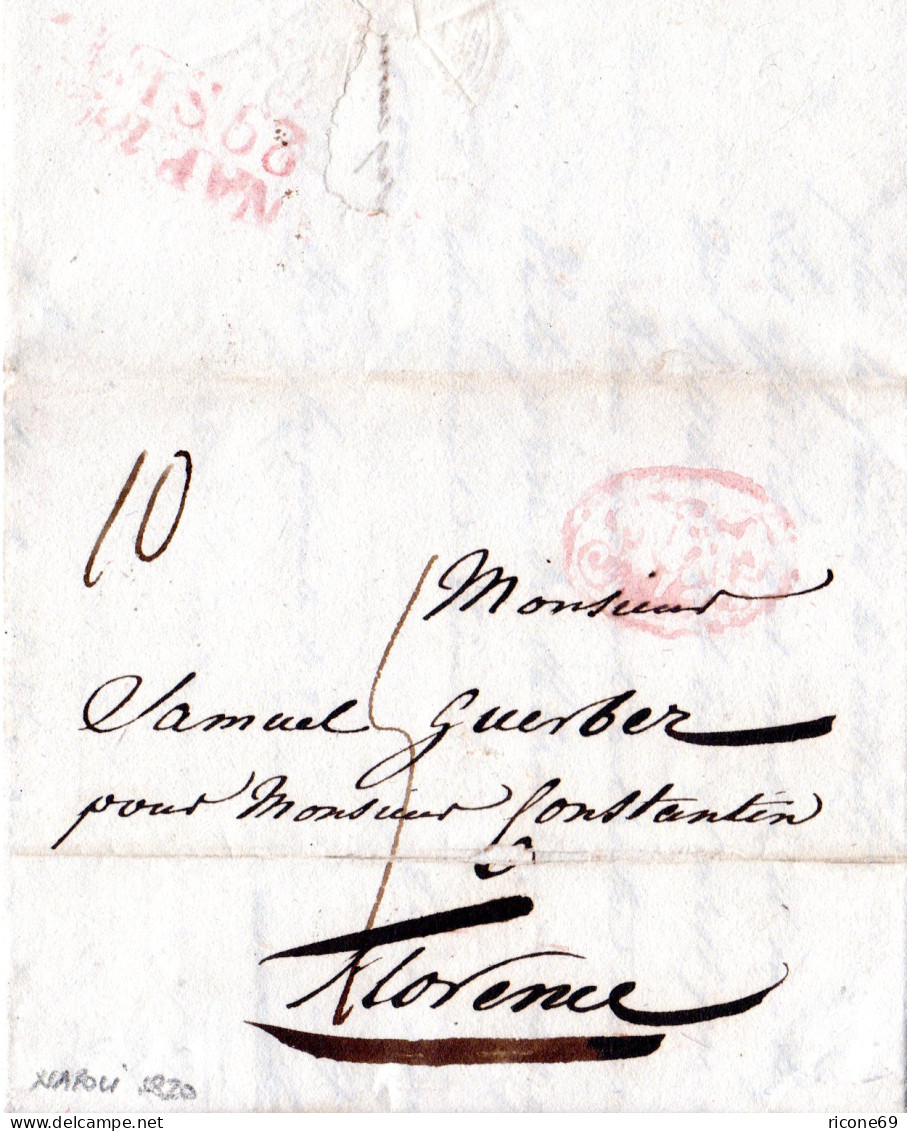 10
Monsieur
Samuel Guerber
pour Monsieur Constantin
Florence
NAPOLI 1820
www.delcampe.net
ricone69